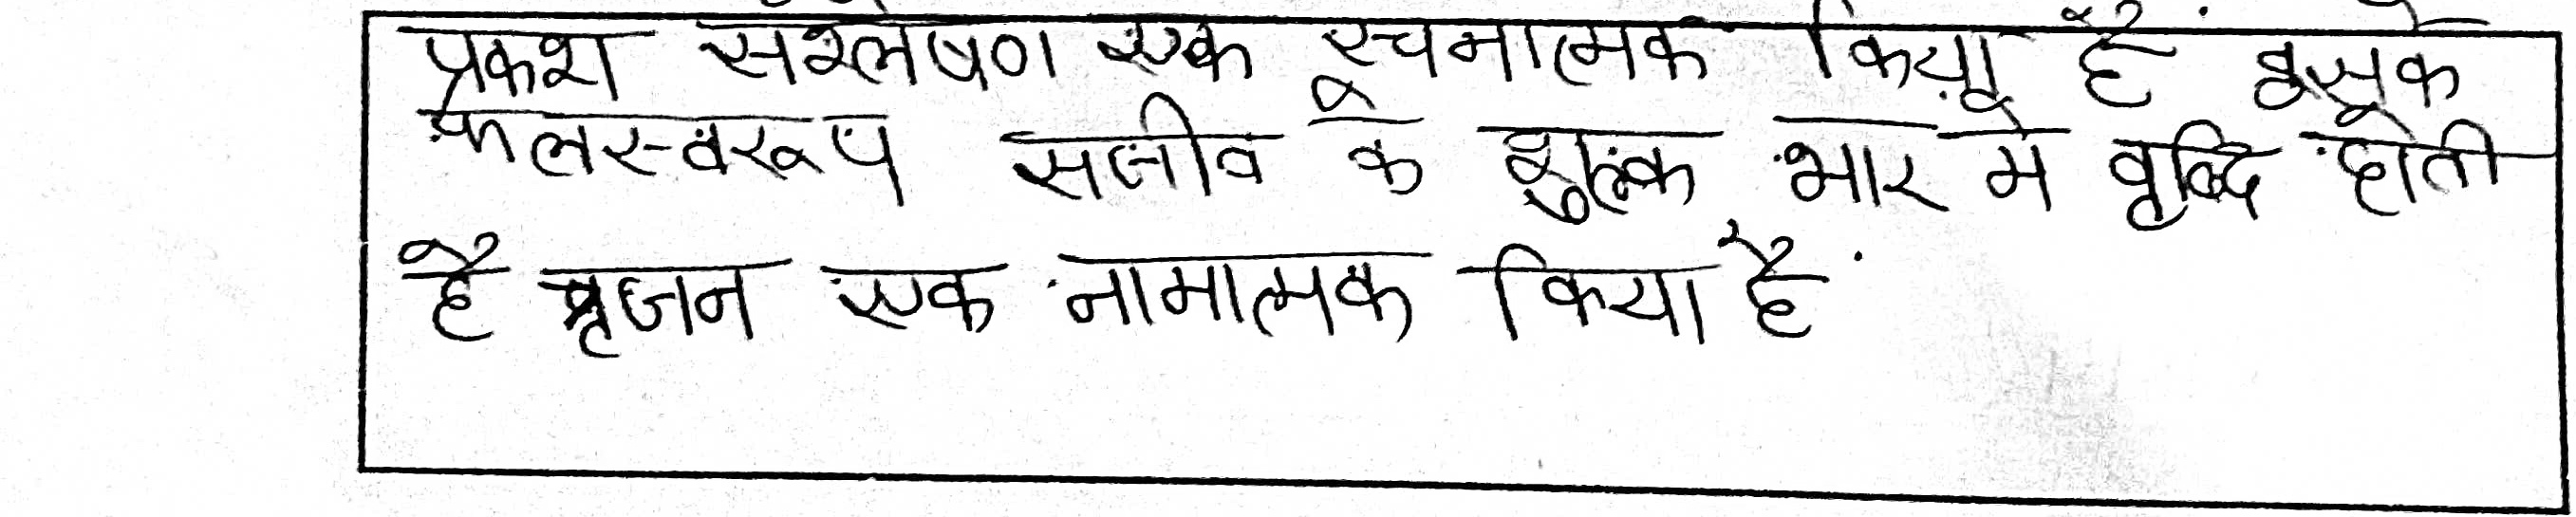 प्रकश संश्लेषण एक रचनात्मक किया है इसके
फलस्वरूप सजीव के शुल्क भार मे वृद्धि होती
है सृजन एक नामात्मक किया है